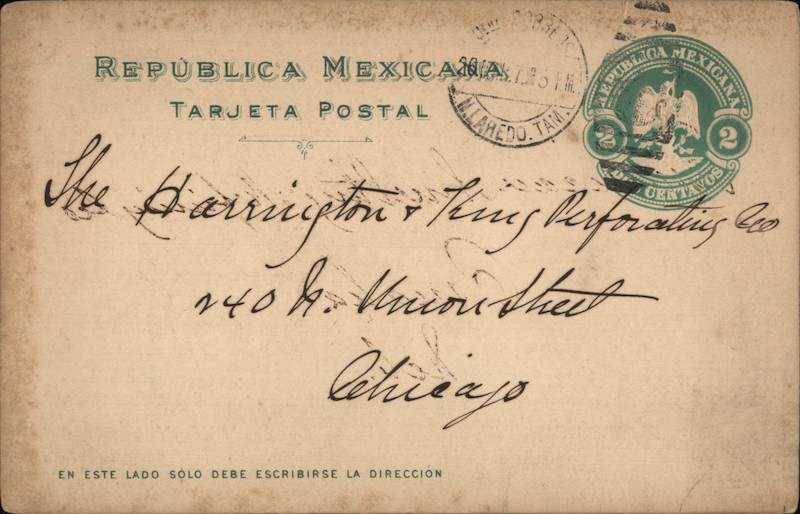 REPÚBLICA MEXICANA
TARJETA POSTAL
N. LAREDO. TAM.
REPUBLICA MEXICANA
2 2
CENTAVOS
The Harrington & King Perforating Co
240 N. Union Street
Chicago
EN ESTE LADO SÓLO DEBE ESCRIBIRSE LA DIRECCIÓN